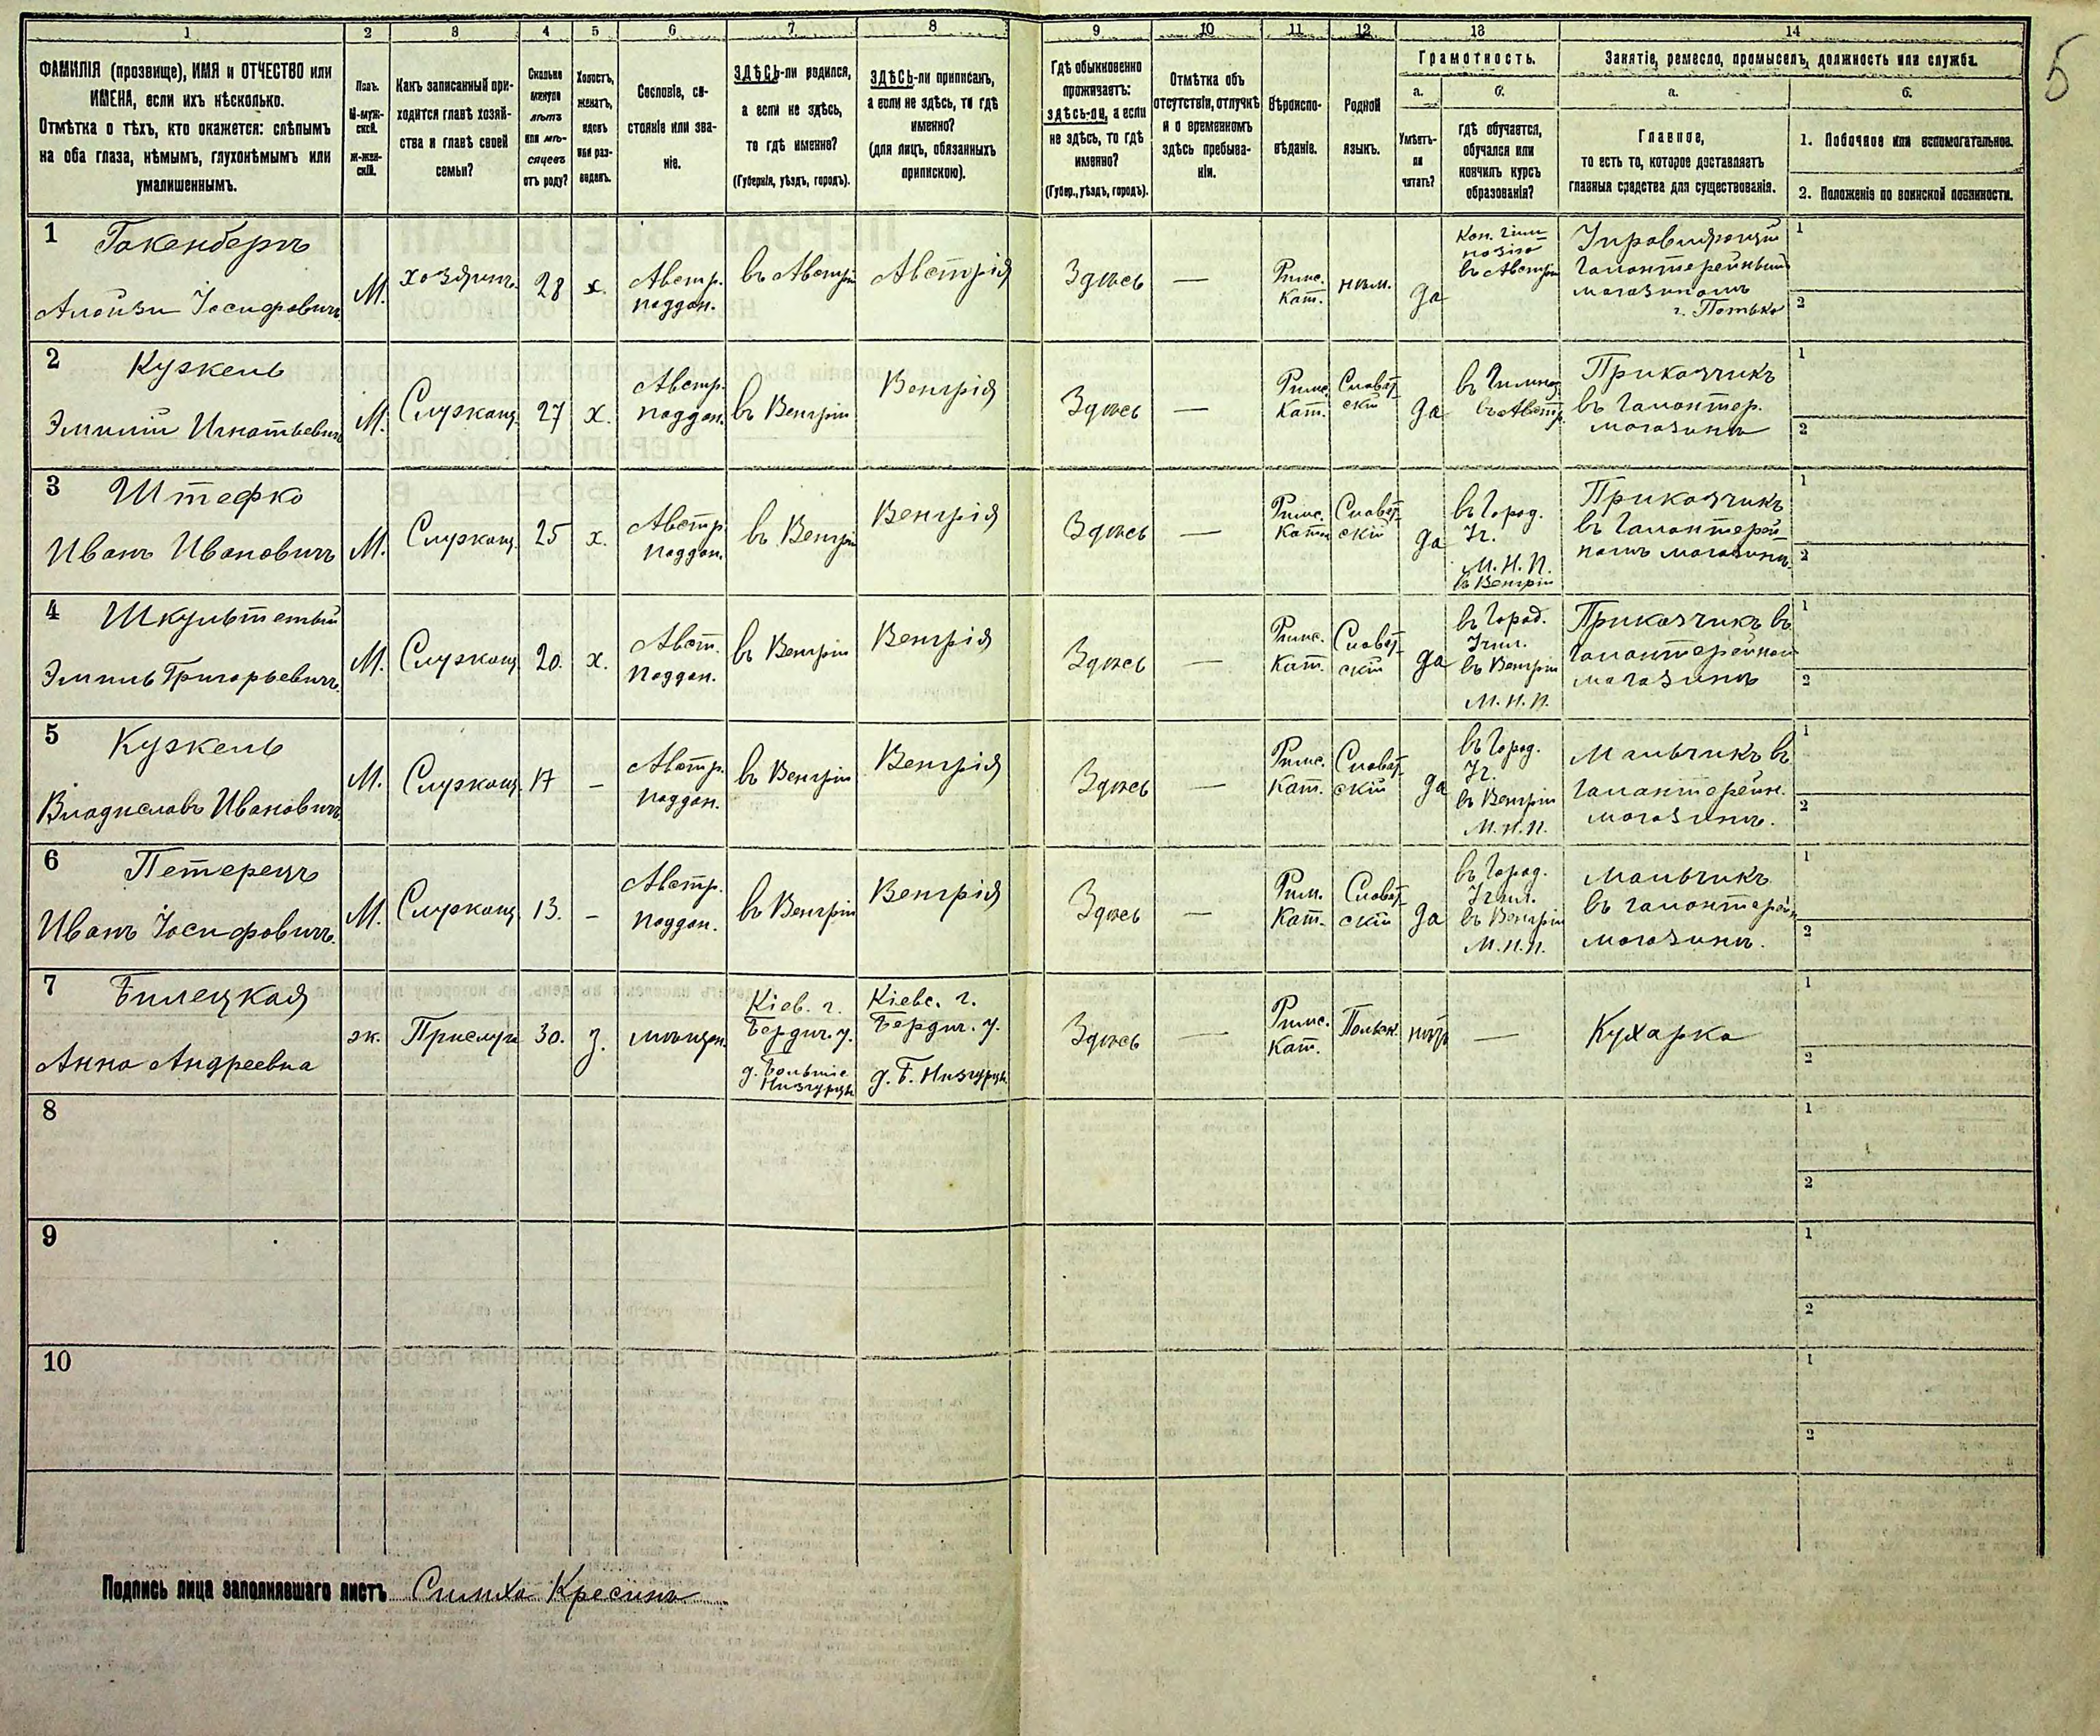 1 2 3 4 5 6 7 8 9 10 11 12 13 14
5
ФАМИЛІЯ (прозвище), ИМЯ и ОТЧЕСТВО или
ИМЕНА, если ихъ нѣсколько.
Отмѣтка о тѣхъ, кто окажется: слѣпымъ
на оба глаза, нѣмымъ, глухонѣмымъ или
умалишеннымъ.
Полъ.
М-муж-
ской.
Ж-жен-
скій.
Какъ записанный при-
ходится главѣ хозяй-
ства и главѣ своей
семьи?
Сколько
минуло
лѣтъ
или мѣ-
сяцевъ
отъ роду?
Холостъ,
женатъ,
вдовъ
или раз-
веденъ.
Сословіе, со-
стояніе или зва-
ніе.
ЗДѢСЬ-ли родился,
а если не здѣсь,
то гдѣ именно?
(Губернія, уѣздъ, городъ).
ЗДѢСЬ-ли приписанъ,
а если не здѣсь, то гдѣ
именно?
(для лицъ, обязанныхъ
припискою).
Гдѣ обыкновенно
проживаетъ:
здѣсь-ли, а если
не здѣсь, то гдѣ
именно?
(Губер., уѣздъ, городъ).
Отмѣтка объ
отсутствіи, отлучкѣ
и о временномъ
здѣсь пребыва-
ніи.
Вѣроиспо-
вѣданіе.
Родной
языкъ.
Грамотность.
а.
Умѣетъ-
ли
читать?
б.
гдѣ обучается,
обучался или
кончилъ курсъ
образованія?
Занятіе, ремесло, промыселъ, должность или служба.
а.
Главное,
то есть то, которое доставляетъ
главныя средства для существованія.
б.
1. Побочное или вспомогательное.
2. Положеніе по воинской повинности.
1 Гакенбергъ
Алойзи Іосифовичъ
М.
хозяинъ
28
х.
Австр.
поддан.
въ Австріи
Австрія
Здѣсь
—
Римс.
Кат.
нѣм.
да
Кон. гим-
назію
въ Австріи
Управляющій
Галантерейнымъ
магазиномъ
1
2
2 Кужель
Эмилій Игнатьевичъ
М.
Служащ.
27
х.
Австр.
поддан.
въ Венгріи
Венгрія
Здѣсь
—
Римс.
Кат.
Словац-
скій
да
въ Гимназ.
въ Австр.
Приказчикъ
въ Галантер.
магазинѣ
1
2
3 Штефко
Иванъ Ивановичъ
М.
Служащ.
25
х.
Австр.
поддан.
въ Венгріи
Венгрія
Здѣсь
—
Римс.
Кат.
Словац-
скій
да
въ Город.
Уч.
М. Н. П.
въ Венгріи
Приказчикъ
въ Галантерей-
номъ магазинѣ
1
2
4 Шкультетый
Эмиль Григорьевичъ
М.
Служащ.
20.
х.
Авст.
поддан.
въ Венгріи
Венгрія
Здѣсь
—
Римс.
Кат.
Словац-
скій
да
въ Город.
Учил.
въ Венгріи
М. Н. П.
Приказчикъ въ
Галантерейном
магазинѣ
1
2
5 Кужель
Владиславъ Ивановичъ
М.
Служащ.
17
—
Австр.
поддан.
въ Венгріи
Венгрія
Здѣсь
—
Римс.
Кат.
Словац-
скій
да
въ Город.
Уч.
въ Венгріи
М. Н. П.
Мальчикъ въ
Галантерейн.
магазинѣ.
1
2
6 Петерецъ
Иванъ Іосифовичъ
М.
Служащ.
13.
—
Австр.
поддан.
въ Венгріи
Венгрія
Здѣсь
—
Рим.
Кат.
Словац-
скій
да
въ Город.
Учил.
въ Венгріи
М. Н. П.
мальчикъ
въ галантерейн
магазинѣ.
1
2
7 Билецкая
Анна Андреевна
ж.
Прислуга
30.
з.
мѣщан.
Кіев. г.
Бердич. у.
д. Большіе
Низгурцы
Кіевс. г.
Бердич. у.
д. Б. Низгурцы
Здѣсь
—
Римс.
Кат.
Польск.
нѣтъ
—
Кухарка
1
2
8
1
2
9
1
2
10
1
2
Подпись лица заполнявшаго листъ Симха Кресинъ